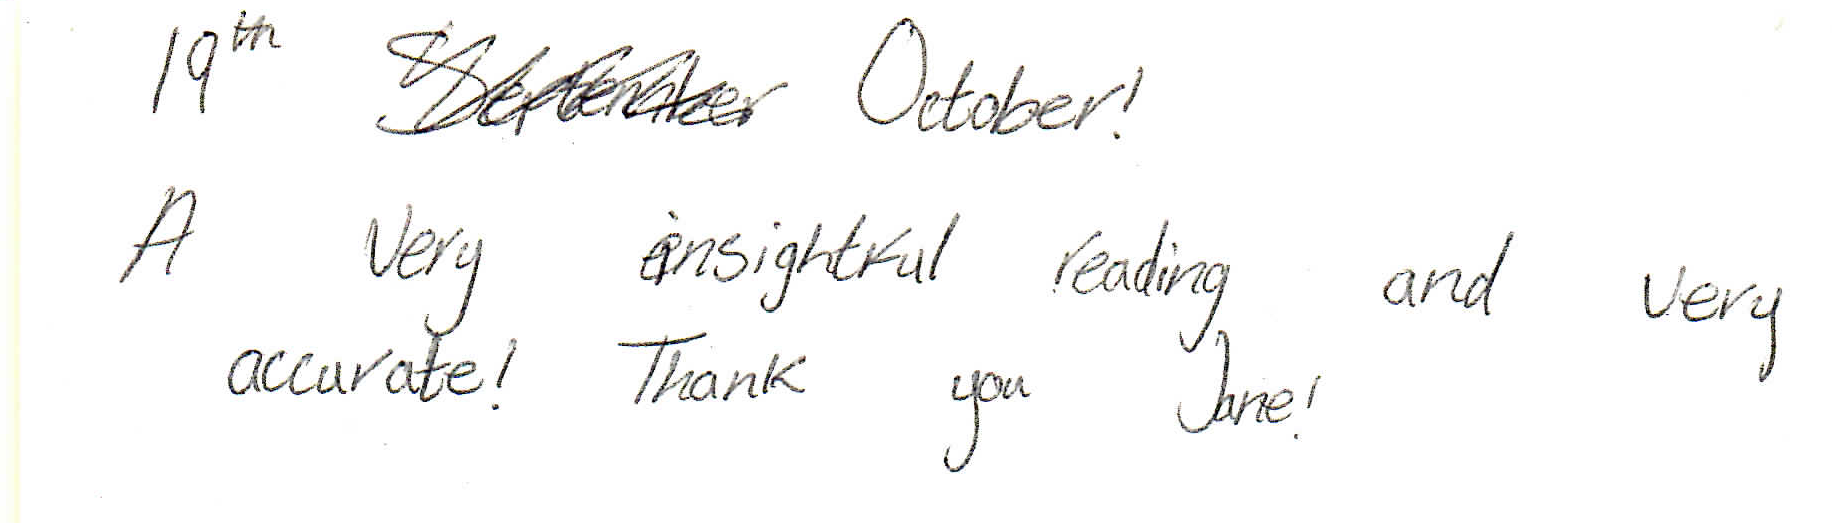 19th September October!
A very insightful reading and very
accurate! Thank you Jane!